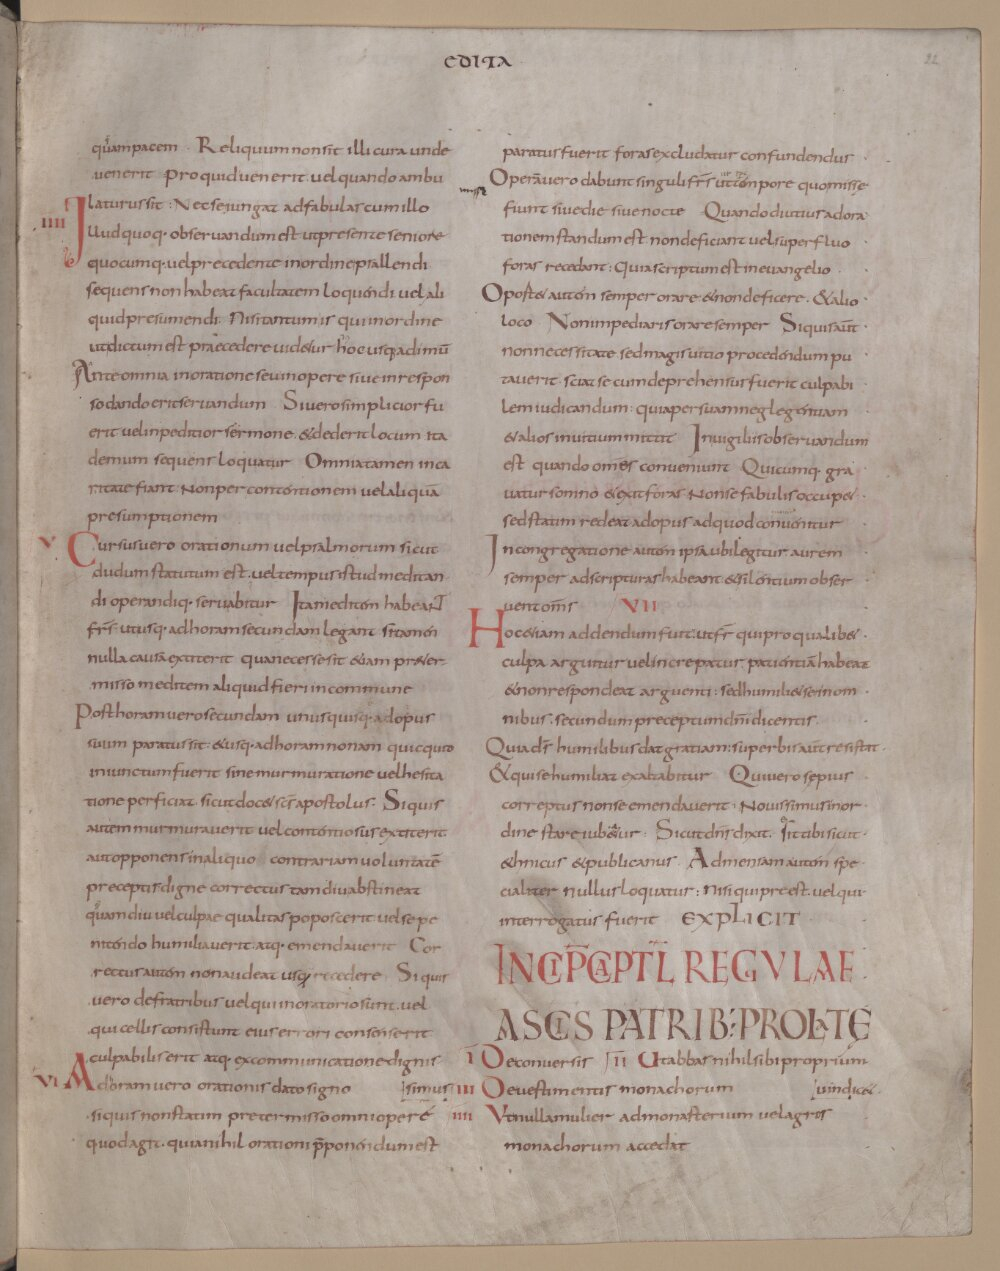 EDITA
22
quā pacem. Reliquum non sit illi cura unde
uenerit pro quid uenerit uel quando ambu
laturus sit: Nec seiungat ad fabulas cum illo
IIII Illud quoq· obseruandum est ut presente seniore
quocumq· uel precedente in ordine psallendi
sequens non habeat facultatem loquendi uel ali
quid presumendi. Nisi tantum is qui in ordine
ut dictum est praecedere uidetur hoc usq; ad imū
Ante omnia in oratione seu in opere siue in respon
so dando erit seruandum Si uero simplicior fu
erit uel inpeditior sermone & dederit locum ita
demum sequens loquatur Omnia tamen in ca
ritate fiant. Non per contentionem uel aliquā
presumptionem
V Cursus uero orationum uel psalmorum sicut
dudum statutum est. uel tempus istud meditan
di operandiq· seruabitur Ita meditem habeant
frs̄ ut usq· ad horam secundam legant si tamen
nulla causa extiterit qua necesse sit etiam preter
misso meditem aliquid fieri in commune
Post horam uero secundam unusquisq· ad opus
suum paratus sit: & usq· ad horam nonam quicquid
iniunctum fuerit sine murmuratione uel hesita
tione perficiat. sicut docet scs̄ apostolus. Si quis
autem murmurauerit uel contentiosus extiterit
aut opponens in aliquo contrariam uoluntatē
preceptis digne correctus tam diu abstineat
quādiu uel culpae qualitas poposcerit uel se pe
nitendo humiliauerit atq· emendauerit Cor
rectus autem non audeat usq recedere Si quis
uero de fratribus uel qui in oratorio sunt. uel
qui cellis consistunt eius errori consenserit
culpabilis erit atq· excommunicatione dignis
VI Ad horam uero orationis dato signo simus
si quis non statim pretermisso omni opere
quod agit. quia nihil orationi p̄ponendum est
paratus fuerit foras excludatur confundendus
Opera uero dabunt singuli frs̄ ut tempore quo misse
misse
fiunt siue die siue nocte Quando diutius adora
tionem standum est non deficiant uel superfluo
foras recedant: Quia scriptum est in euangelio
Oportet autem semper orare & non deficere. & alio
loco Non impediaris orare semper Si quis aut
non necessitate sed magis uitio procedendum pu
tauerit. sciat se cum deprehensus fuerit culpabi
lem iudicandum: quia per suam neglegentiam
& alios in uitium mittit Inuigiliis obseruandum
est quando omēs conueniunt Quicumq· gra
uatur somno & exit foras Non se fabulis occupet
sed statim redeat ad opus ad quod conuenitur
In congregatione autem ipsa ubi legitur aurem
semper ad scripturas habeant & silentium obser
uent oms̄ VII
Hoc etiam addendum fuit. ut fr̄ qui pro qualibet
culpa arguitur uel increpatur patientiā habeat
& non respondeat arguenti: sed humiliet se in om
nibus. secundum preceptum dn̄i dicentis.
Quia ds̄ humilibus dat gratiam: superbis aut resistit.
& qui se humiliat exaltabitur Qui uero sepius
correptus non se emendauerit. Nouissimus in or
dine stare iubetur: Sicut dn̄s dixit. Sit tibi sicut
ethnicus & publicanus. Ad mensam autem spe
cialiter nullus loquatur: Nisi qui preest. uel qui
interrogatus fuerit EXPLICIT
INCIP CAPTL REGVLAE
A SCIS PATRIB; PROLATE
I De conuersis II Ut abbas nihil sibi proprium
III De uestimentis monachorum uindicet
IIII Vt nulla mulier ad monasterium uel agros
monachorum accedat